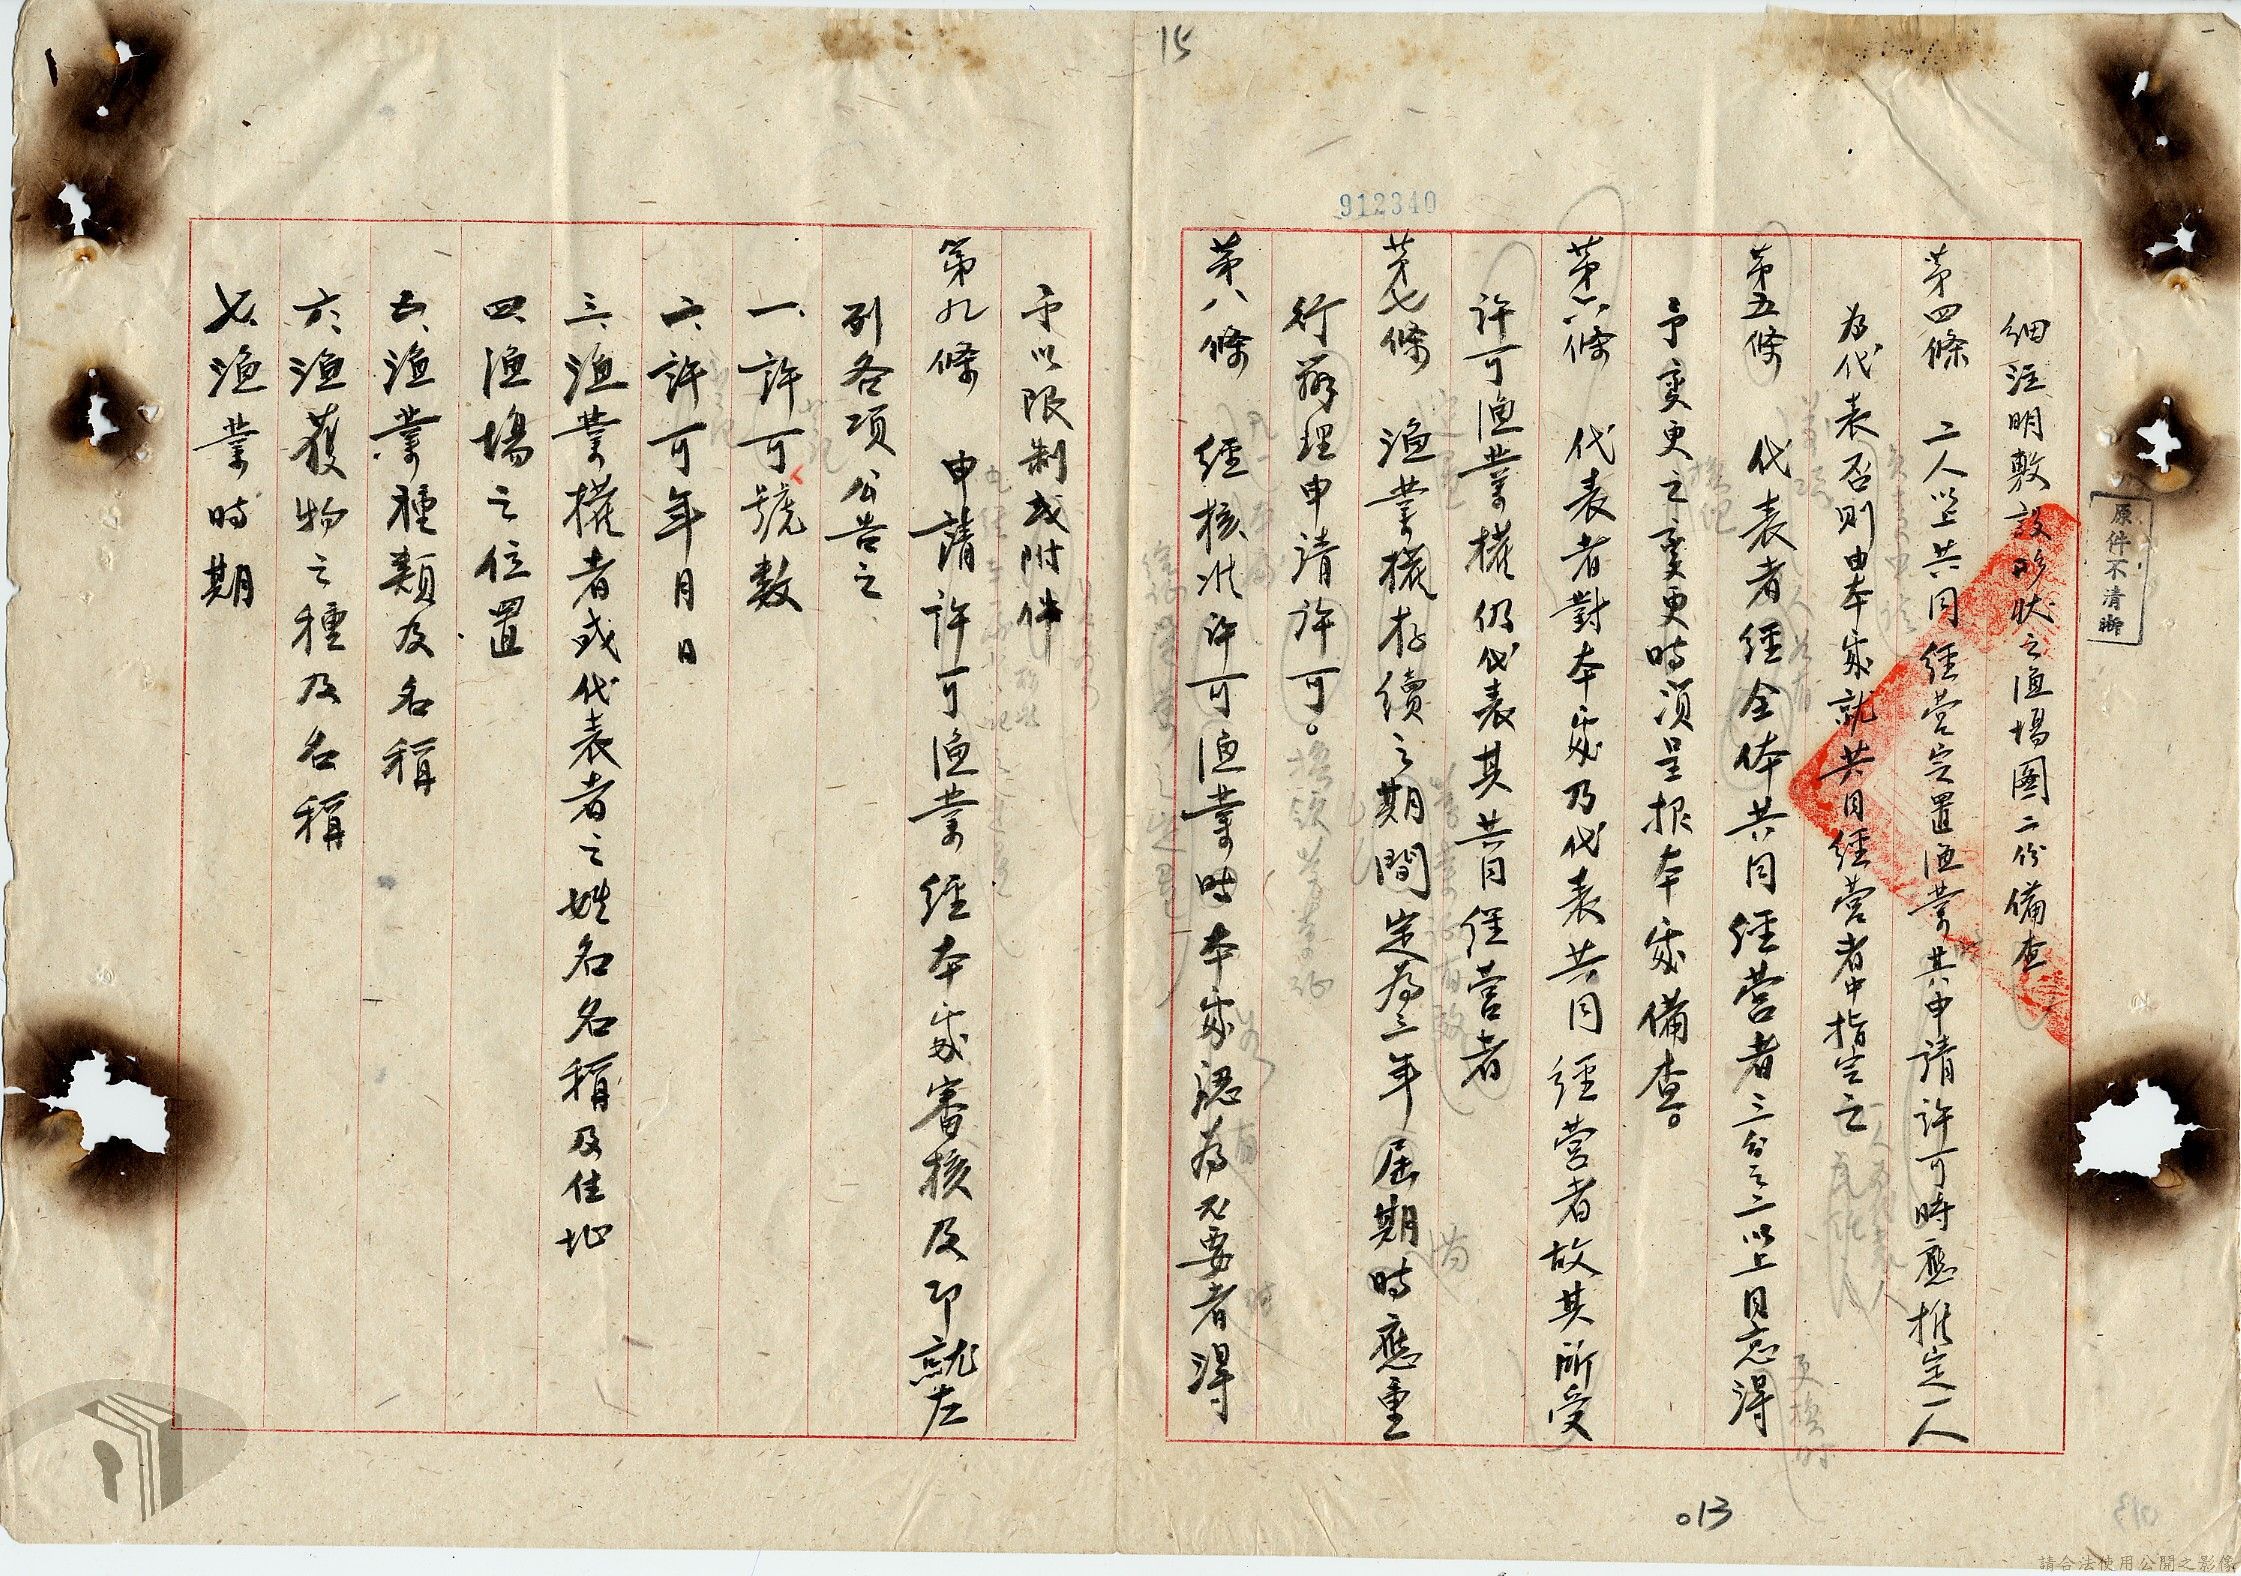 15
912340
細注明敷設形狀之漁場圖二份備查
第四條　二人以上共同經營定置漁業其申請許可時應推定一人
為代表否則由本處就共同經營者中指定之
第五條　代表者經全体共同經營者三分之二以上同意得
予變更之變更時須呈報本處備查。
第六條　代表者對本處乃代表共同經營者故其所受
許可漁業權仍代表其共同經營者
第七條　漁業權存續之期間定為三年屆期時應重
行辦理申請許可。
第八條　經核准許可漁業時本處認為必要者得
予以限制或附件
第九條　申請許可漁業經本處審核及即就左
列各項公告之
一、許可號數
二、許可年月日
三、漁業權者或代表者之姓名名稱及住址
四、漁場之位置
五、漁業種類及名稱
六、漁獲物之種及名稱
七、漁業時期
原件不清晰
013
請合法使用公開之影像